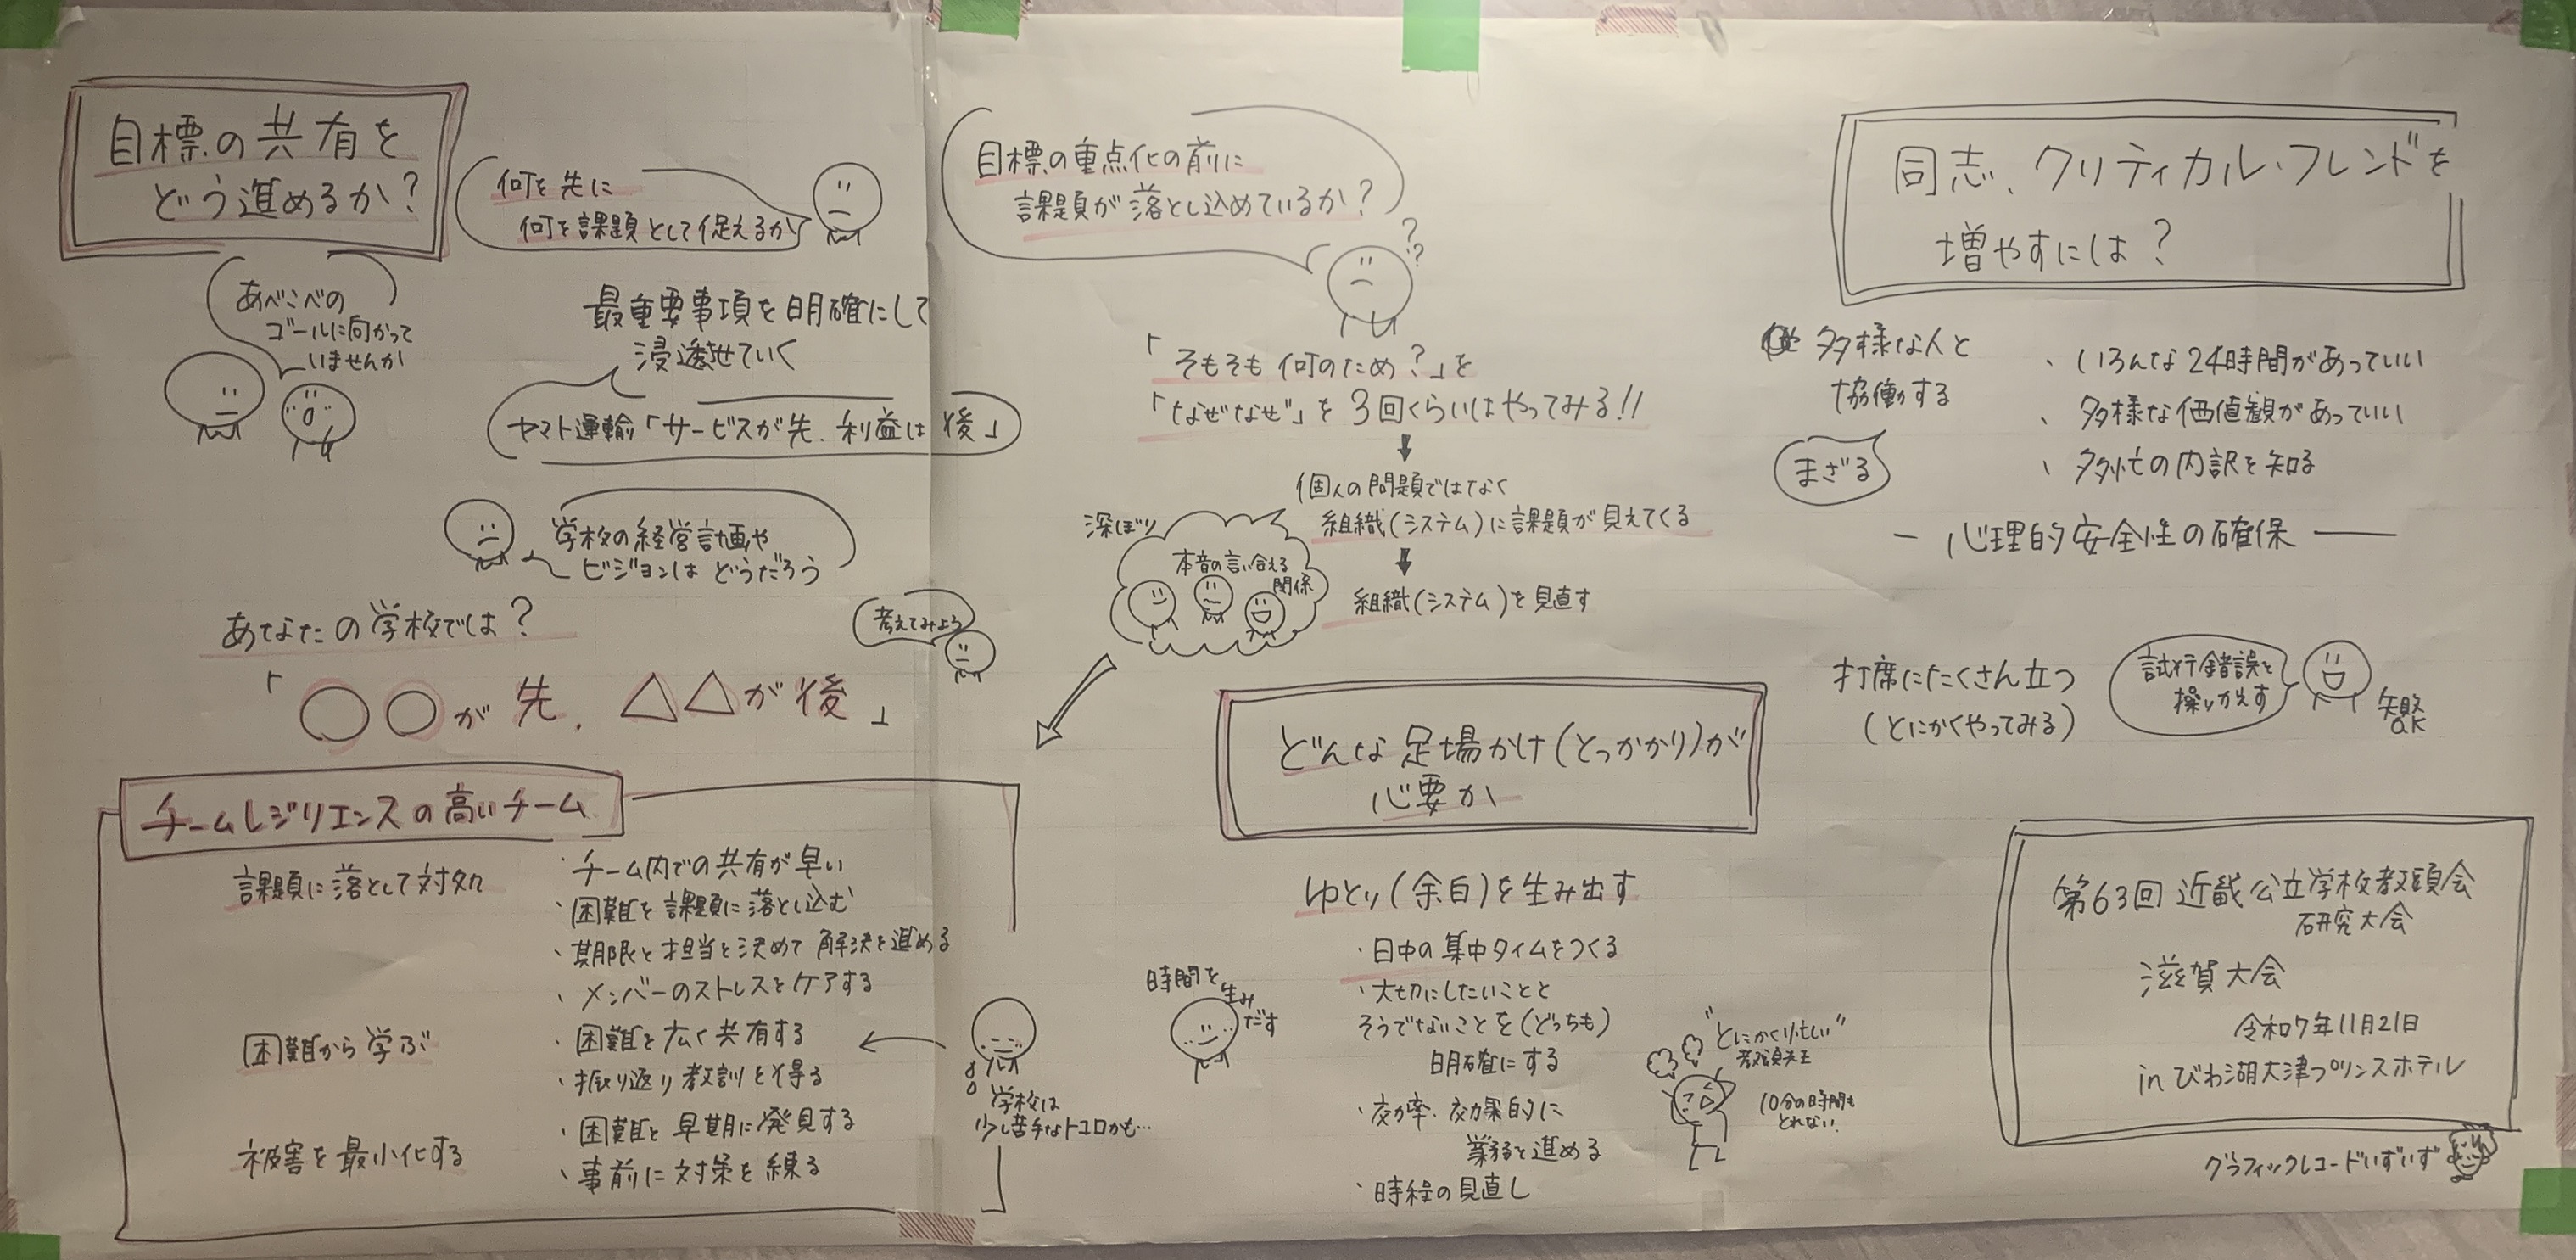 目標の共有を
どう進めるか?
何を先に
何を課題として捉えるか
あべこべの
ゴールに向かって
いませんか
最重要事項を明確にして
浸透させていく
ヤマト運輸「サービスが先、利益は後」
学校の経営計画や
ビジョンはどうだろう
あなたの学校では?
考えてみよう
「○○が先、△△が後」
チームレジリエンスの高いチーム
課題に落として対処
・チーム内での共有が早い
・困難を課題に落とし込む
・期限と担当を決めて解決を進める
・メンバーのストレスをケアする
困難から学ぶ
・困難を広く共有する
・振り返り教訓を得る
被害を最小化する
・困難を早期に発見する
・事前に対策を練る
学校は
少し苦手なトコロかも…
目標の重点化の前に
課題が落とし込めているか?
??
「そもそも何のため?」を
「なぜなぜ」を3回くらいはやってみる!!
個人の問題ではなく
組織(システム)に課題が見えてくる
深ぼり
本音の言い合える
関係
組織(システム)を見直す
どんな足場かけ(とっかかり)が
必要か
ゆとり(余白)を生み出す
・日中の集中タイムをつくる
・大切にしたいことと
そうでないことを(どっちも)
明確にする
・効率、効果的に
業務を進める
・時程の見直し
時間を
生み
だす
"とにかく忙しい"
教頭先生
10分の時間も
とれない
同志、クリティカル・フレンドを
増やすには?
多様な人と
協働する
まざる
、いろんな24時間があっていい
、多様な価値観があっていい
、多忙の内訳を知る
ー 心理的安全性の確保 ー
打席にたくさん立つ
(とにかくやってみる)
試行錯誤を
操りかえす
失敗
OK
第63回 近畿公立学校教頭会
研究大会
滋賀大会
令和7年11月21日
in びわ湖大津プリンスホテル
グラフィックレコードいずいず